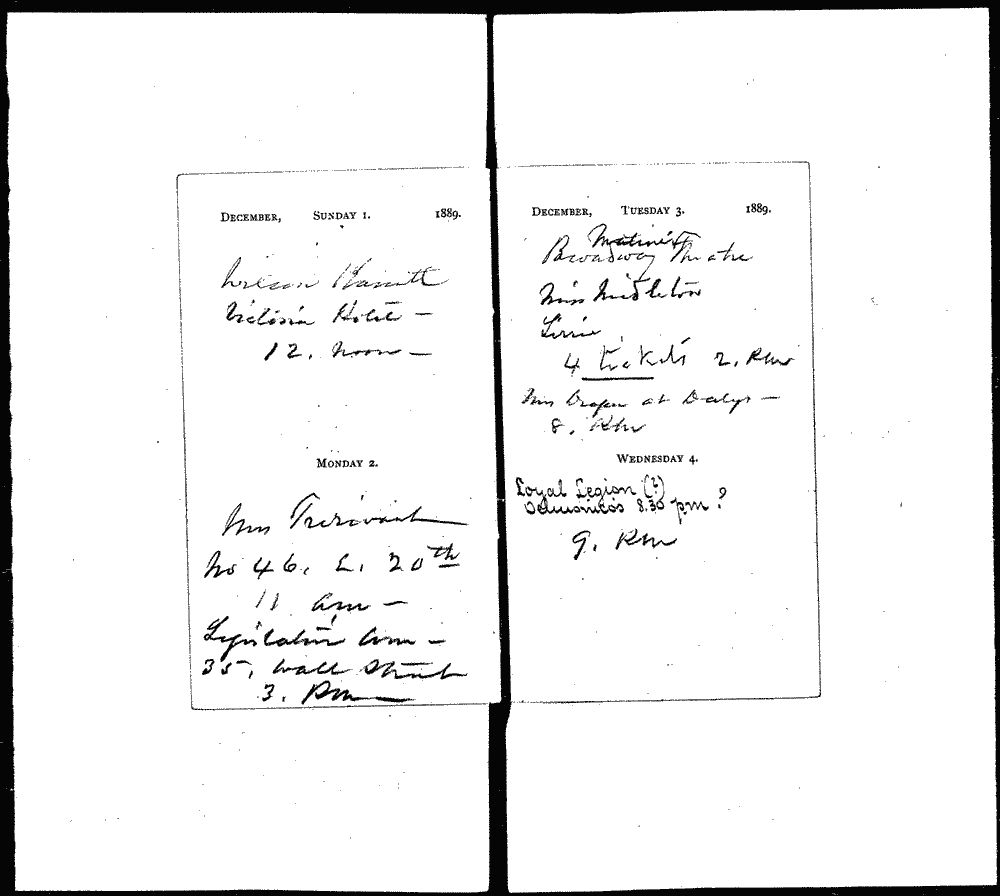 DECEMBER, SUNDAY 1. 1889.
Wilson Barrett
Victoria Hotel —
12. Noon —
MONDAY 2.
Mrs
No 46. E. 20th
11 am —
Legislative Com —
35, Wall Street
3. PM
DECEMBER, TUESDAY 3. 1889.
Matinée
Broadway Theatre
Miss Middleton
Lizzie
4 tickets 2. PM
Mrs Draper at Dalys —
8. PM
WEDNESDAY 4.
Loyal Legion (?)
Delmonicos 8.30 pm ?
9. PM